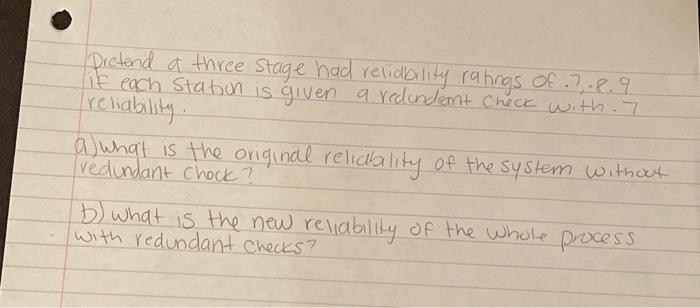 Pretend a three stage had reliability ratings of .7, .8 .9
if each station is given a redundant check with .7
reliability.
a) what is the original reliability of the system without
redundant chock?
b) what is the new reliability of the whole process
with redundant checks?